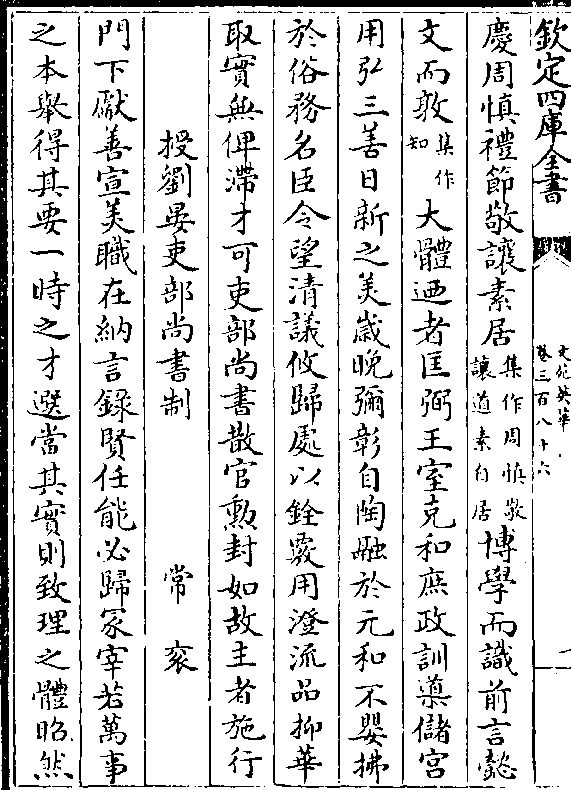 欽定四庫全書
文苑英華
卷三百八十六
慶周慎禮節敬讓素居集作周慎敬讓道素自居博學而識前言懿
文而敦集作知大體迺者匡弼王室克和庶政訓導儲宮
用弘三善日新之美歲晚彌彰自陶融於元和不嬰拂
於俗務名臣令望清議攸歸處以銓覈用澄流品抑華
取實無俾滯才可吏部尚書散官勳封如故主者施行
授劉晏吏部尚書制 常袞
門下獻善宣美職在納言錄賢任能必歸冢宰若萬事
之本舉得其要一時之才選當其實則致理之體昭然